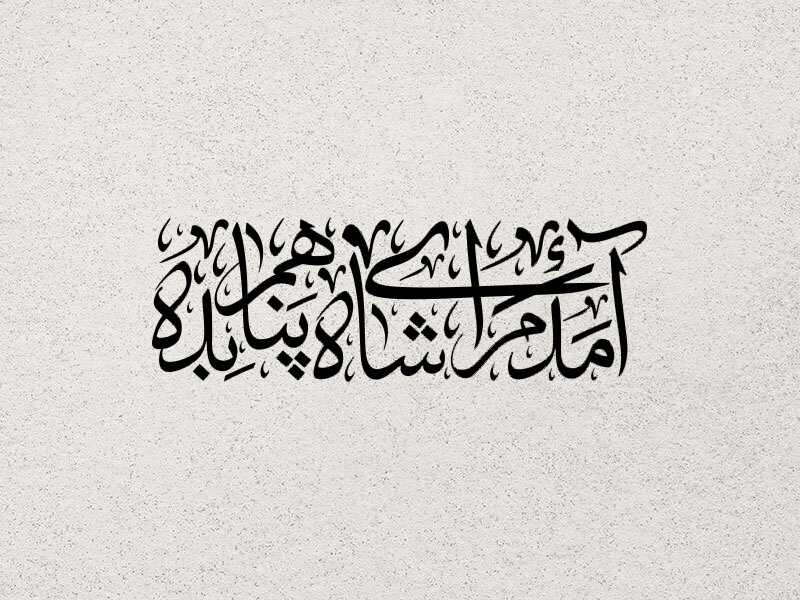 آمده‌ام ای شاه پناهم بده